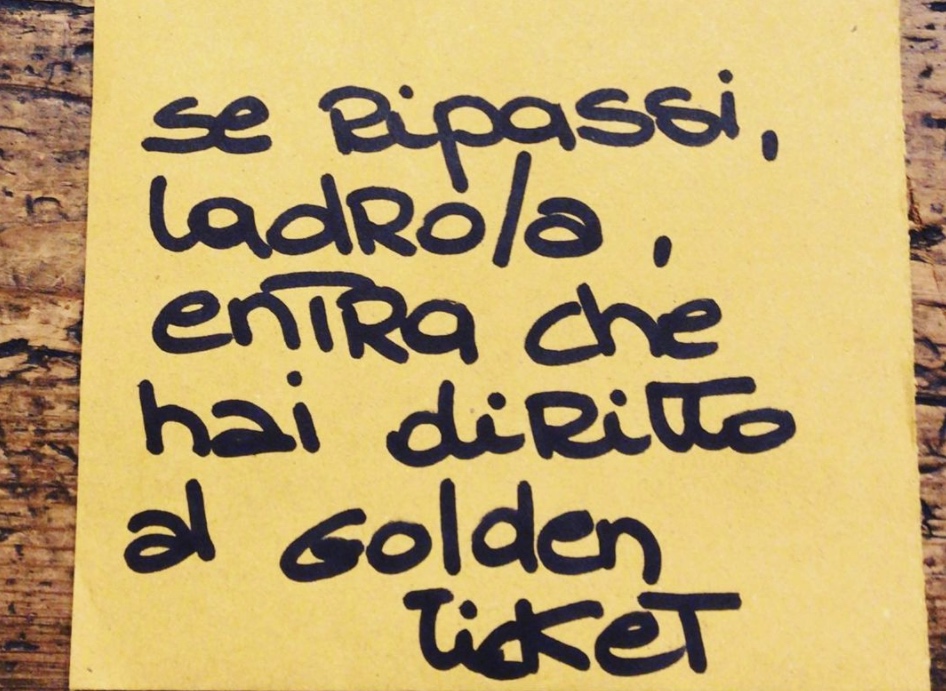 se Ripassi,
ladRo/a,
enTRa che
hai diRitto
al Golden
ticKeT